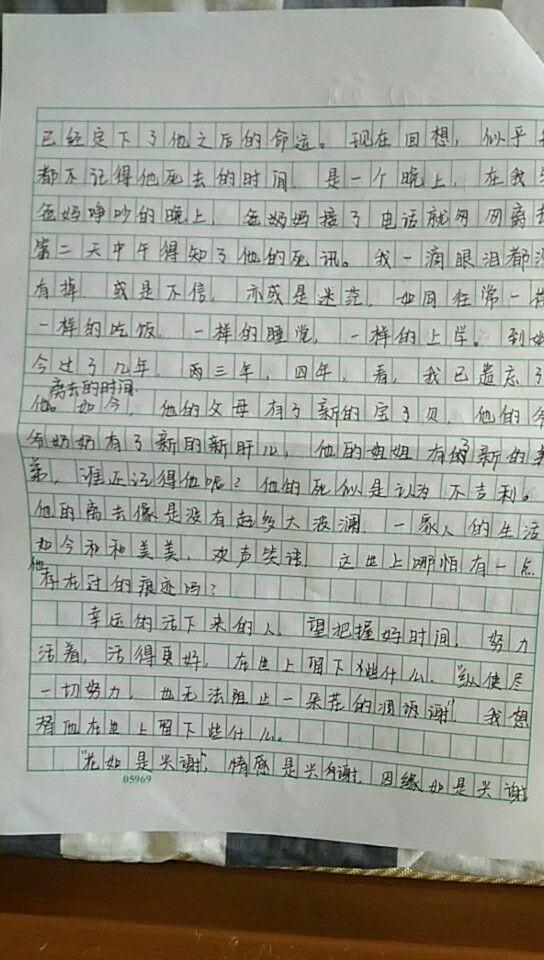 已经定下了他之后的命运。现在回想,似乎我
都不记得他死去的时间,是一个晚上,在我与
爸妈争吵的晚上,爸妈妈接了电话就匆匆离去
第二天中午得知了他的死讯。我一滴眼泪都没
有掉,或是不信,亦或是迷茫,如同往常一样
一样的吃饭,一样的睡觉,一样的上学。到如
今过了几年,两三年,四年,看,我已遗忘了
离去的时间
他。如今,他的父母有了新的宝贝,他的爷
爷奶奶有了新的新肝儿,他的姐姐有了新的弟
弟,谁还记得他呢?他的死似是认为不吉利。
他的离去像是没有起多大波澜,一家人的生活
如今和和美美,欢声笑语,这世上哪怕有一点
他存在过的痕迹吗?
幸运的活下来的人,望把握好时间,努力
活着,活得更好,在世上留下些什么。"纵使尽
一切努力,也无法阻止一朵花的凋谢",我想
替他在世上留下些什么。
"花如是兴谢",情感是兴谢,因缘如是兴谢
05969